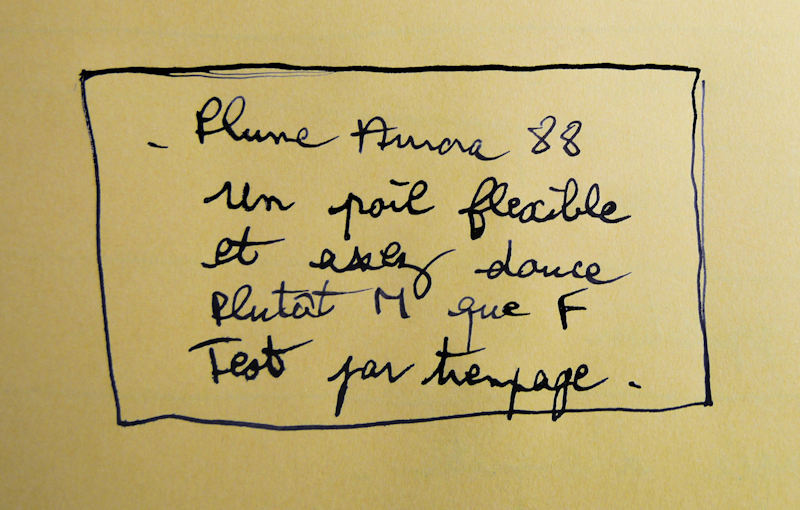 - Plume Aurora 88
un poil flexible
et assez douce
Plutôt M que F
Test par trempage.